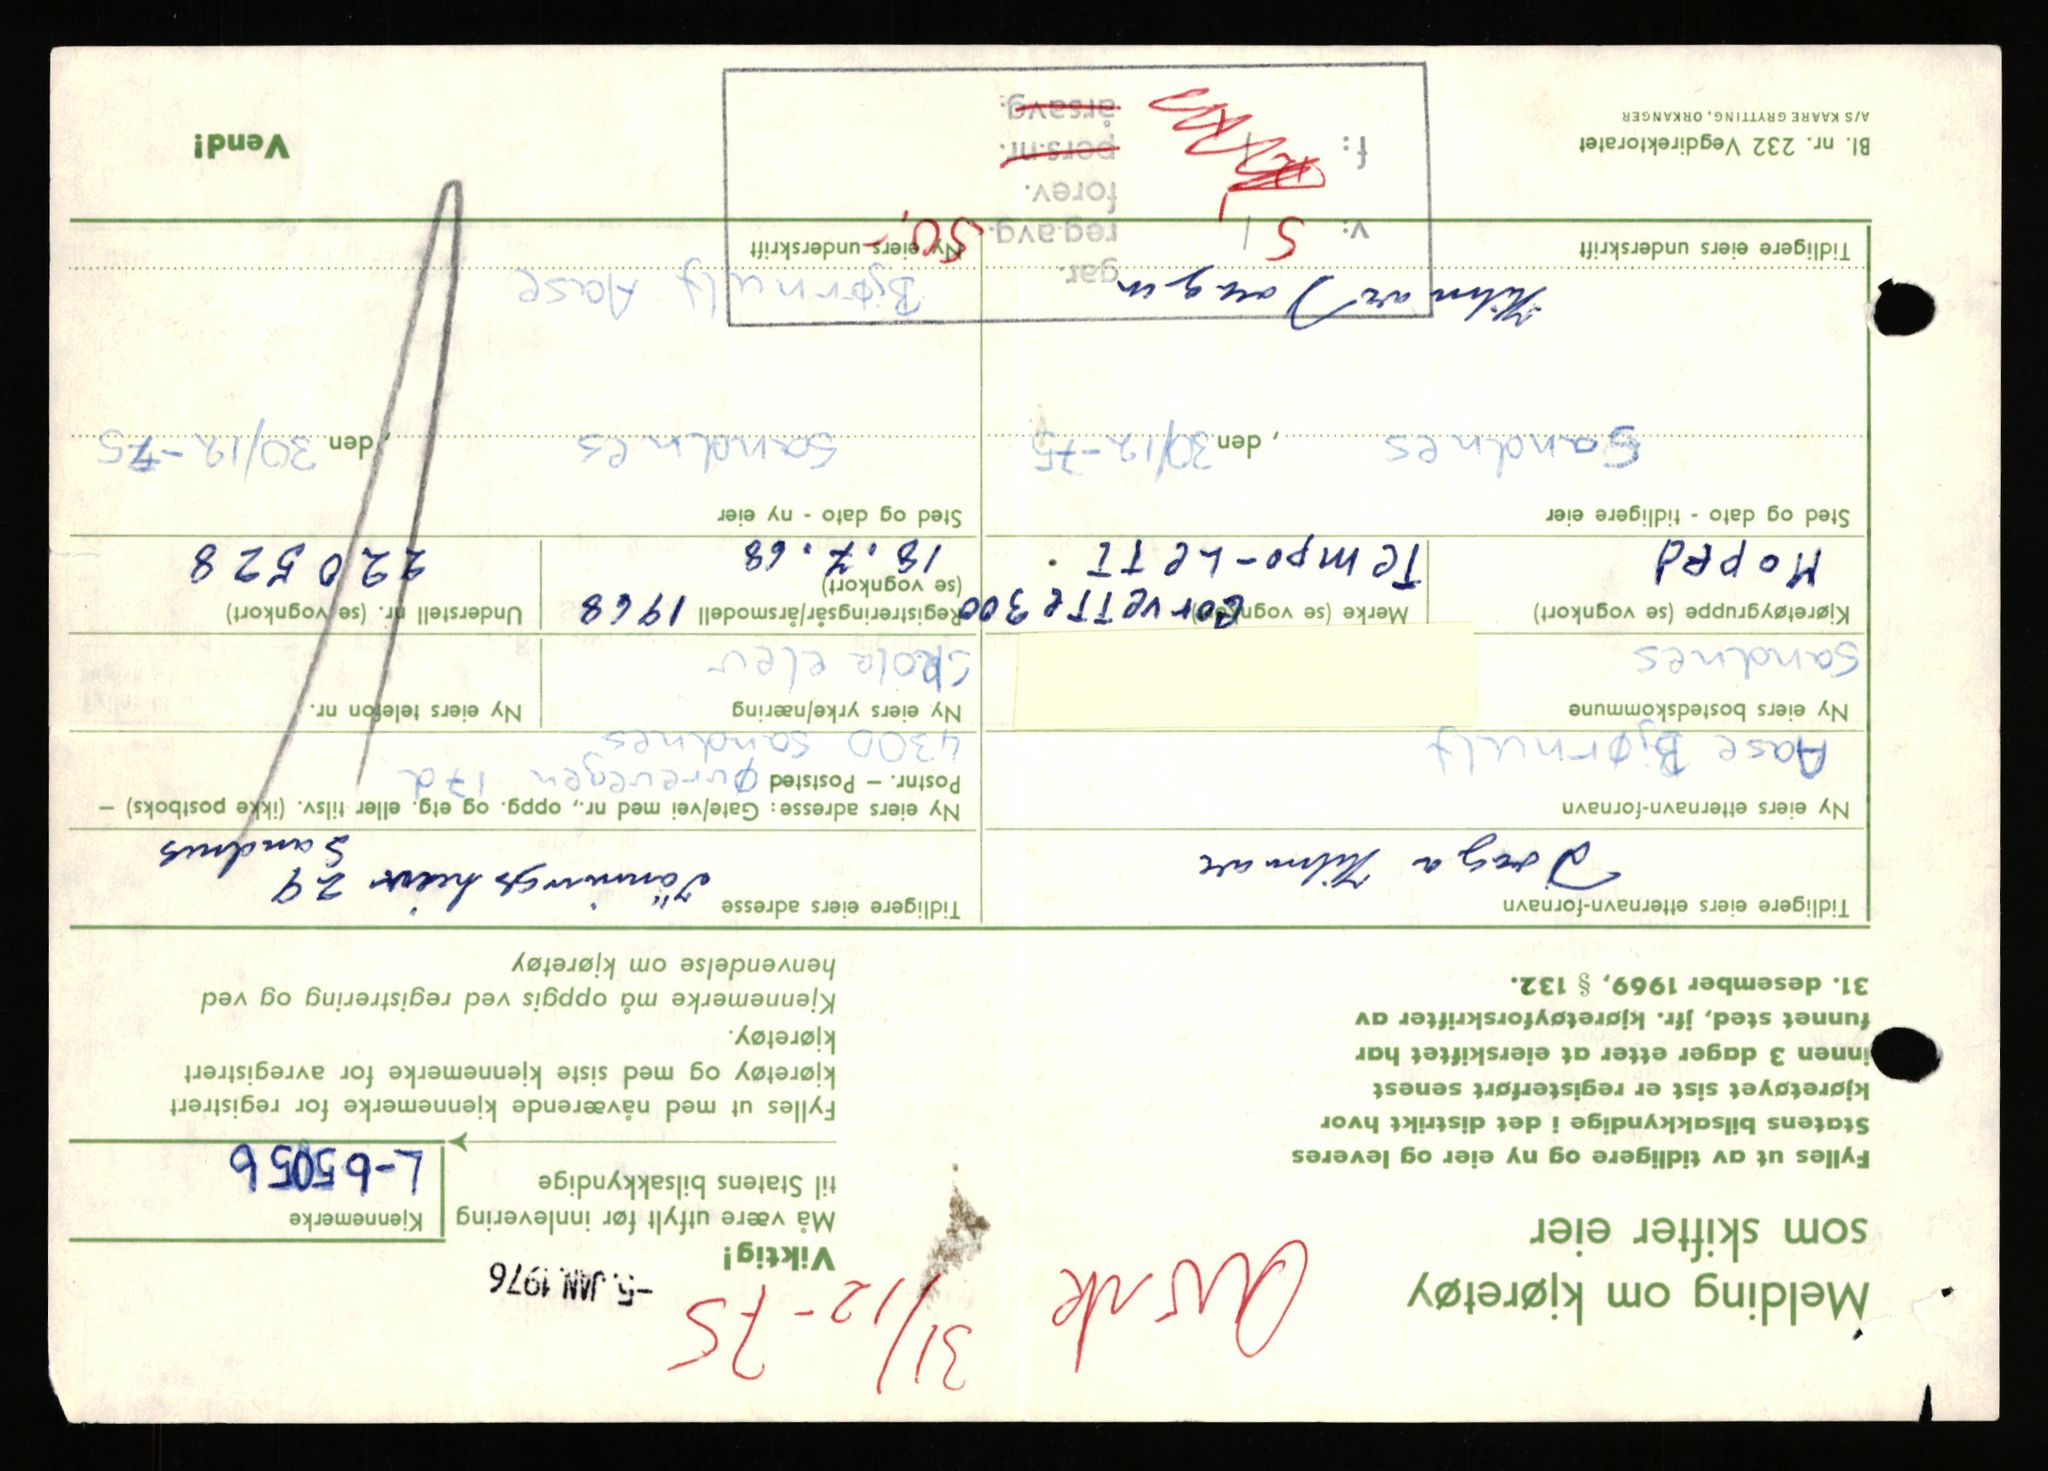 Melding om kjøretøy
som skifter eier
31/12-75
-5. JAN. 1976
Fylles ut av tidligere og ny eier og leveres
Statens bilsakkyndige i det distrikt hvor
kjøretøyet sist er registerført senest
innen 3 dager etter at eierskiftet har
funnet sted, jfr. kjøretøyforskrifter av
31. desember 1969, § 132.
Viktig!
Må være utfylt før innlevering
til Statens bilsakkyndige
Kjennemerke
L-65056
Fylles ut med nåværende kjennemerke for registrert
kjøretøy og med siste kjennemerke for avregistrert
kjøretøy.
Kjennemerke må oppgis ved registrering og ved
henvendelse om kjøretøy
Tidligere eiers etternavn-fornavn
Hilmar
Tidligere eiers adresse
29
Sandnes
Ny eiers etternavn-fornavn
Aase Bjørnulf
Ny eiers adresse: Gate/vei med nr., oppg. og etg. eller tilsv. (ikke postboks) —
Postnr. — Poststed Øvrevegen 17d
4300 Sandnes
Ny eiers bostedskommune
Sandnes
Ny eiers yrke/næring
Skole elev
Ny eiers telefon nr.
Kjøretøygruppe (se vognkort)
Moped
Merke (se vognkort)
Corvette 300
Tempo-Lett
Registreringsår/årsmodell 1968
(se vognkort)
18.7.68
Understell nr. (se vognkort)
220528
Sted og dato - tidligere eier
Sandnes, den 30/12-75
Sted og dato - ny eier
Sandnes, den 30/12-75
Hilmar
Tidligere eiers underskrift
Bjørnulf Aase
Ny eiers underskrift
gar.
v: 51 reg.avg. 50,-
forev.
f: pers.nr.
årsavg.
Bl. nr. 232 Vegdirektoratet
A/S KAARE GRYTTING, ORKANGER
Vend!